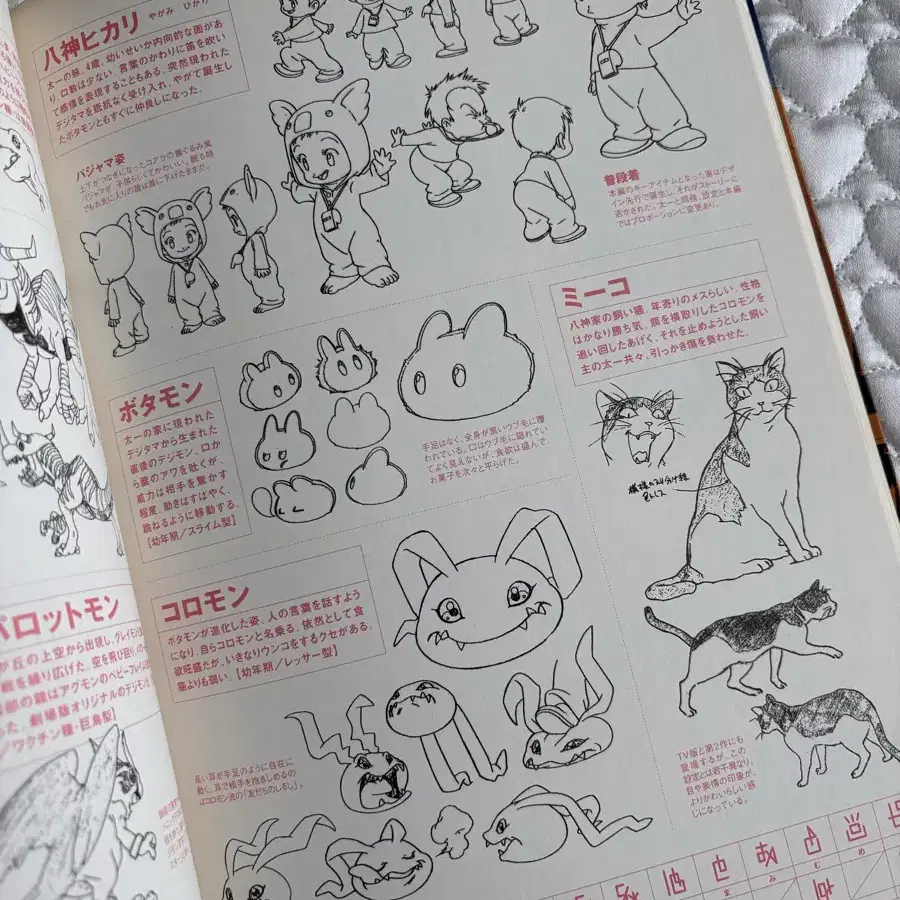 八神ヒカリ やがみ ひかり
太一の妹、4歳。幼いせいか内向的な面があ
り、口数は少ない。言葉のかわりに笛を吹い
て感情を表現することもある。突然現われた
デジタマを抵抗なく受け入れ、やがて誕生し
たボタモンともすぐに仲良しになった。
パジャマ姿
上下がつなぎになったコアラの着ぐるみ風
パジャマが、子供らしくてかわいい。眠る時
でもお気に入りの笛は首に下げたままだ。
普段着
本編のキーアイテムとなった笛はデザ
イン先行で誕生し、それがストーリーに
活かされた。太一と同様、設定と本編
ではプロポーションに変更あり。
ミーコ
八神家の飼い猫。年寄りのメスらしい。性格
はかなり勝ち気。餌を横取りしたコロモンを
追い回したあげく、それを止めようとした飼い
主の太一共々、引っかき傷を負わせた。
模様の
TV版と第2作にも
登場するが、この
設定とは若干異なり、
目や表情の印象が、
よりかわいらしい感
じになっている。
ボタモン
太一の家に現われた
デジタマから生まれた
直後のデジモン。口か
ら酸のアワを吐くが、
威力は相手を驚かす
程度。動きはすばやく、
跳ねるように移動する。
【幼年期/スライム型】
手足はなく、全身が黒いウブ毛に覆
われている。口はウブ毛に隠れてい
てよく見えないが、食欲は盛んで、
お菓子を次々と平らげた。
コロモン
ボタモンが進化した姿。人の言葉を話すよう
になり、自らコロモンと名乗る。依然として食
欲旺盛だが、いきなりウンコをするクセがある。
猫よりも弱い。【幼年期/レッサー型】
長い耳が手足のように自在に
動く。耳で相手を抱きしめるの
はコロモン流の「友だちのしるし」。
パロットモン
が丘の上空から出現し、グレイモン
戦を繰り広げた。空を飛び回り、
部の鎧はアグモンのベビーフレイム
った。劇場版オリジナルのデジモン
ワクチン種・巨鳥型】
ま み む め